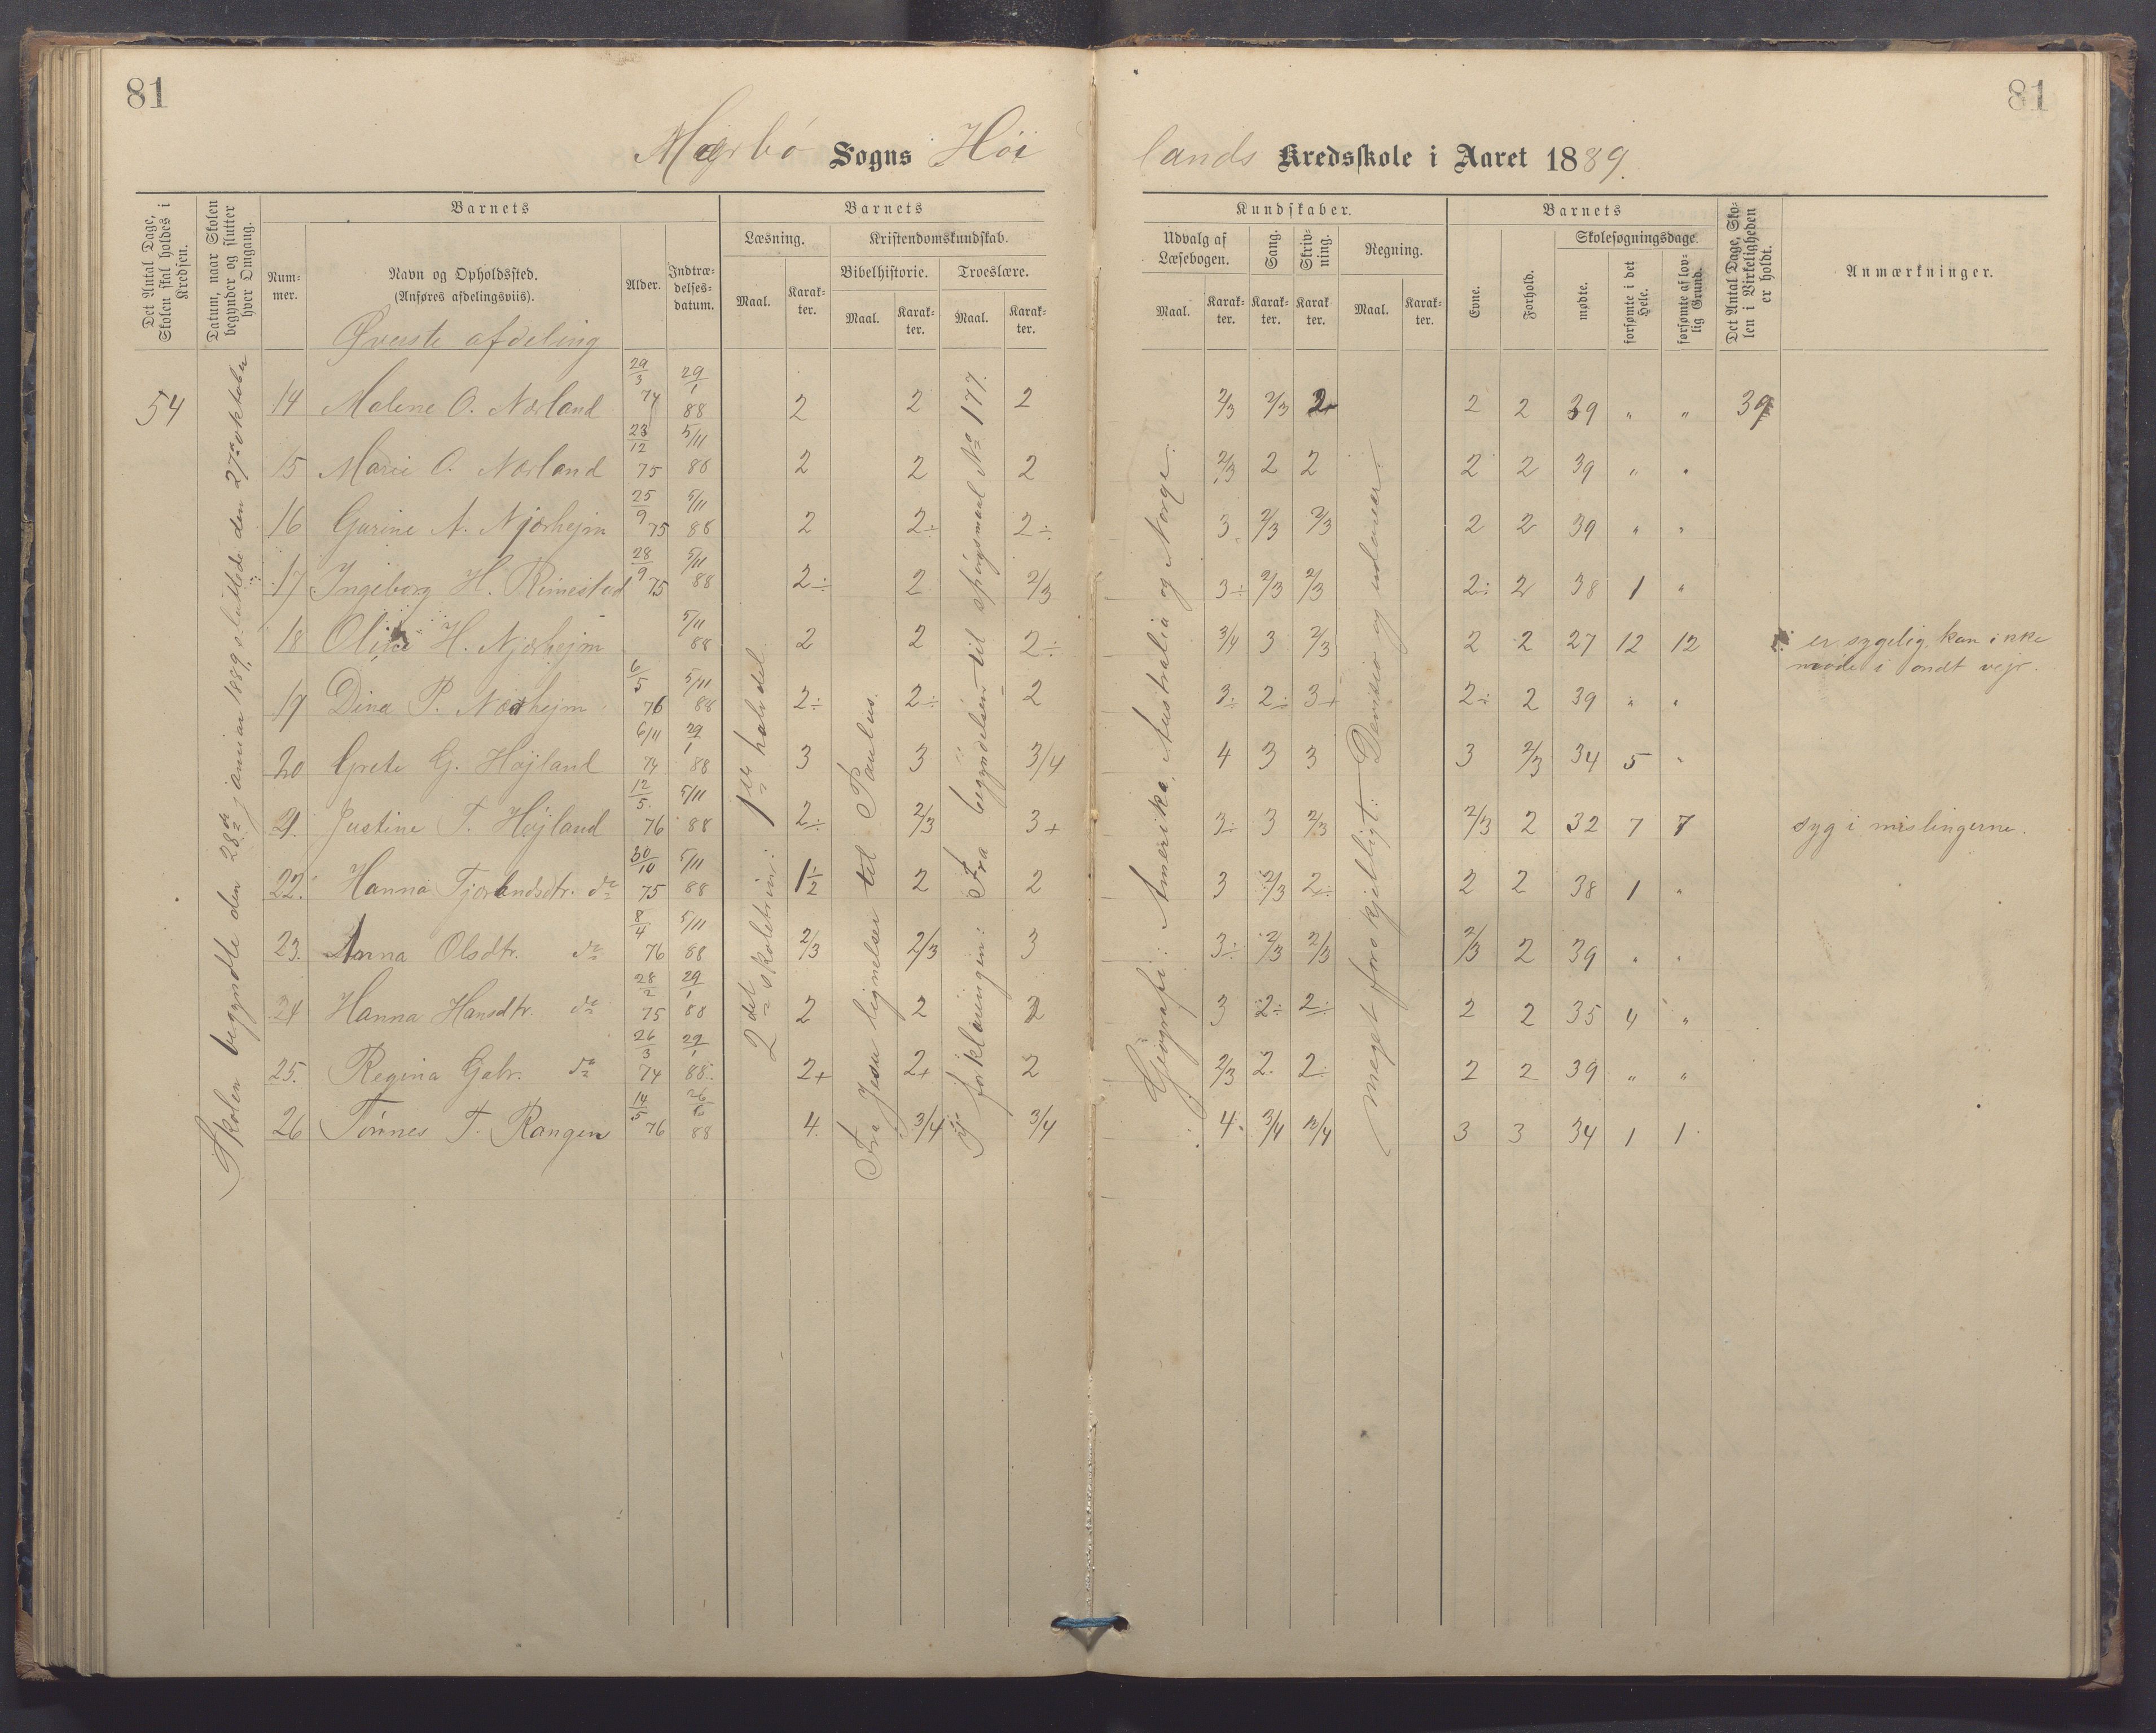 81
81
Nærbö Sogns Höi
lands Kredsskole i Aaret 1889.
Det Antal Dage, Skolen skal holdes i Kredsen.
Datum, naar Skolen begynder og slutter hver Omgang.
Barnets
Num-mer.
Navn og Opholdssted.
(Anføres afdelingsviis).
Alder.
Indtræ-delses-datum.
Barnets
Læsning.
Kristendomskundskab.
Maal.
Karak-ter.
Bibelhistorie.
Troeslære.
Maal.
Karak-ter.
Maal.
Karak-ter.
Kundskaber.
Udvalg af Læsebogen.
Sang.
Skriv-ning.
Regning.
Maal.
Karak-ter.
Karak-ter.
Karak ter.
Maal.
Karak-ter.
Barnets
Evne.
Forhold.
Skolesøgningsdage.
mødte.
forsømte i det Hele.
forsømte af lov-lig Grund.
Det Antal Dage, Sko-len i Virkeligheden er holdt.
Anmærkninger.
Øverste afdeling
54
Skolen begyndte den 28de januar 1889, sluttede den 27de oktober
2det skoletrin: 1ste halvdel.
Fra Jesu lignelser til Paulus.
forklaringen: Fra begyndelsen til spörgsmaal No 177.
Geografi: Amerika, Australia og Norge.
meget forskjelligt: Devisio og udenar.
14 Malene O. Nærland 29/3 74 29/1 88 2 2 2 2/3 2/3 2 2 2 39 " " 39
15 Marie O. Nærland 23/12 75 5/11 86 2 2 2 2/3 2 2 2 2 39 " "
16 Gurine A. Njærhejm 25/9 75 5/11 88 2 2÷ 2÷ 3 2/3 2/3 2 2 39 " "
17 Ingeborg H. Rimestad 28/9 75 5/11 88 2÷ 2 2/3 3÷ 2/3 2/3 2÷ 2 38 1 "
18 H. Njærhejm 5/11 88 2 2 2÷ 3/4 3 2/3 2 2 27 12 12 er sygelig, kan ikke
møde i ondt vejr.
19 Dina P. Nærhejm 6/5 76 5/11 88 2÷ 2÷ 2 3÷ 2÷ 3+ 2÷ 2 39 " "
20 Grete G. Höjland 6/11 74 29/1 88 3 3 3/4 4 3 3 3 2/3 34 5 "
21. Justine T. Höjland 12/5 76 5/11 88 2÷ 2/3 3+ 3÷ 3 2/3 2/3 2 32 7 7 syg i mislingerne.
22. Hanna Tjærandsdtr. do 30/10 75 5/11 88 1½ 2 2 3 2/3 2÷ 2 2 38 1 "
23. Anna Olsdtr. do 8/4 76 5/11 88 2/3 2/3 3 3÷ 2/3 2/3 2/3 2 39 " "
24 Hanna Hansdtr. do 28/2 75 29/1 88 2 2 2 3 2÷ 2÷ 2 2 35 4 "
25. Regina Gabr. do 26/3 74 29/1 88 2+ 2+ 2 2/3 2. 2÷ 2 2 39 " "
26 Tönnes T. Rangen 14/5 76 26/6 88 4. 3/4 3/4 4. 3/4 3/4 3 3 34 1 1